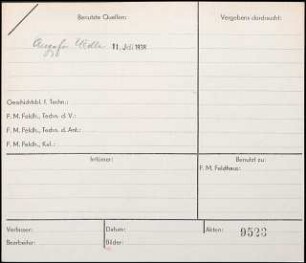 Benutzte Quellen:
Vergebens durchsucht:
11. Juli 1938
Geschichtsbl. f. Techn.:
F. M. Feldh., Techn. d. V.:
F. M. Feldh., Techn. d. Ant.:
F. M. Feldh., Kul.:
Irrtümer:
Benutzt zu:
F. M. Feldhaus:
Verfasser:
Datum:
Akten:
9523
Bearbeiter:
Bilder: